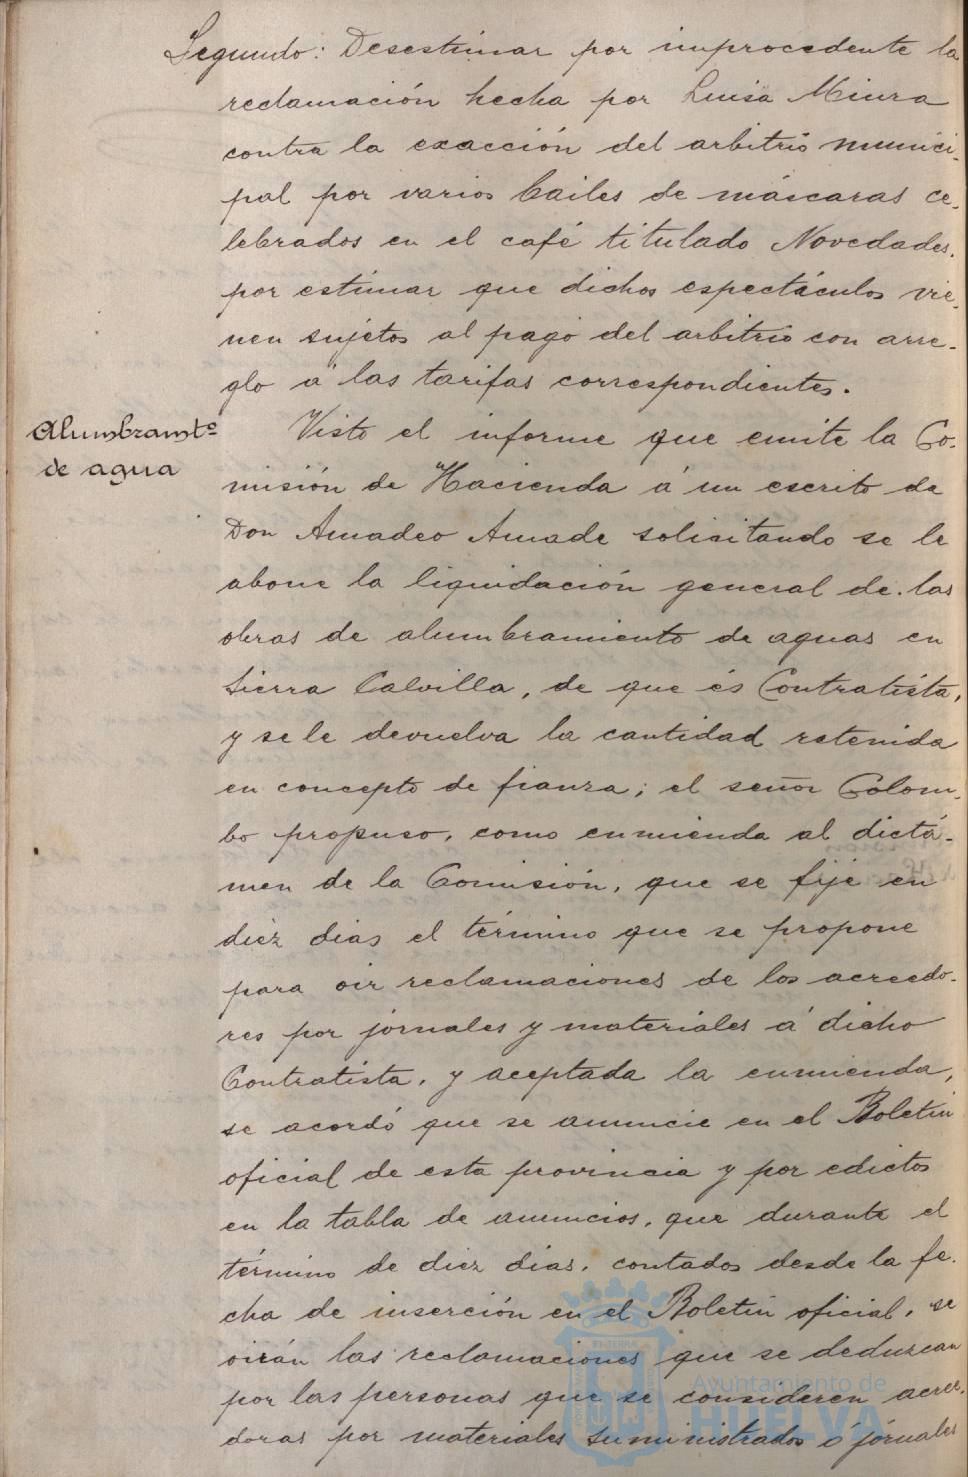 Segundo: Desestimar por improcedente la
reclamación hecha por Luisa Miura
contra la exacción del arbitrio munici-
pal por varios bailes de máscaras ce-
lebrados en el café titulado Novedades.
por estimar que dichos espectáculos vie-
nen sujetos al pago del arbitrio con arre-
glo á las tarifas correspondientes.
Alumbramtº
de agua
Visto el informe que emite la Co-
misión de Hacienda á un escrito de
Don Amadeo Amade solicitando se le
abone la liquidación general de las
obras de alumbramiento de aguas en
Sierra Calvilla, de que és Contratista,
y se le devuelva la cantidad retenida
en concepto de fianza; el señor Colom-
bo propuso, como enmienda al dictá-
men de la Comisión, que se fije en
diéz dias el término que se propone
para oir reclamaciones de los acreedo-
res por jornales y materiales á dicho
Contratista, y aceptada la enmienda,
se acordó que se anuncie en el Boletin
oficial de esta provincia y por edictos
en la tabla de anuncios, que durante el
término de diez dias, contados desde la fe-
cha de inserción en el Boletin oficial, se
oirán las reclamaciones que se deduzcan
por las personas que se consideren acree-
doras por materiales suministrados ó jornales
Ayuntamiento de
HUELVA